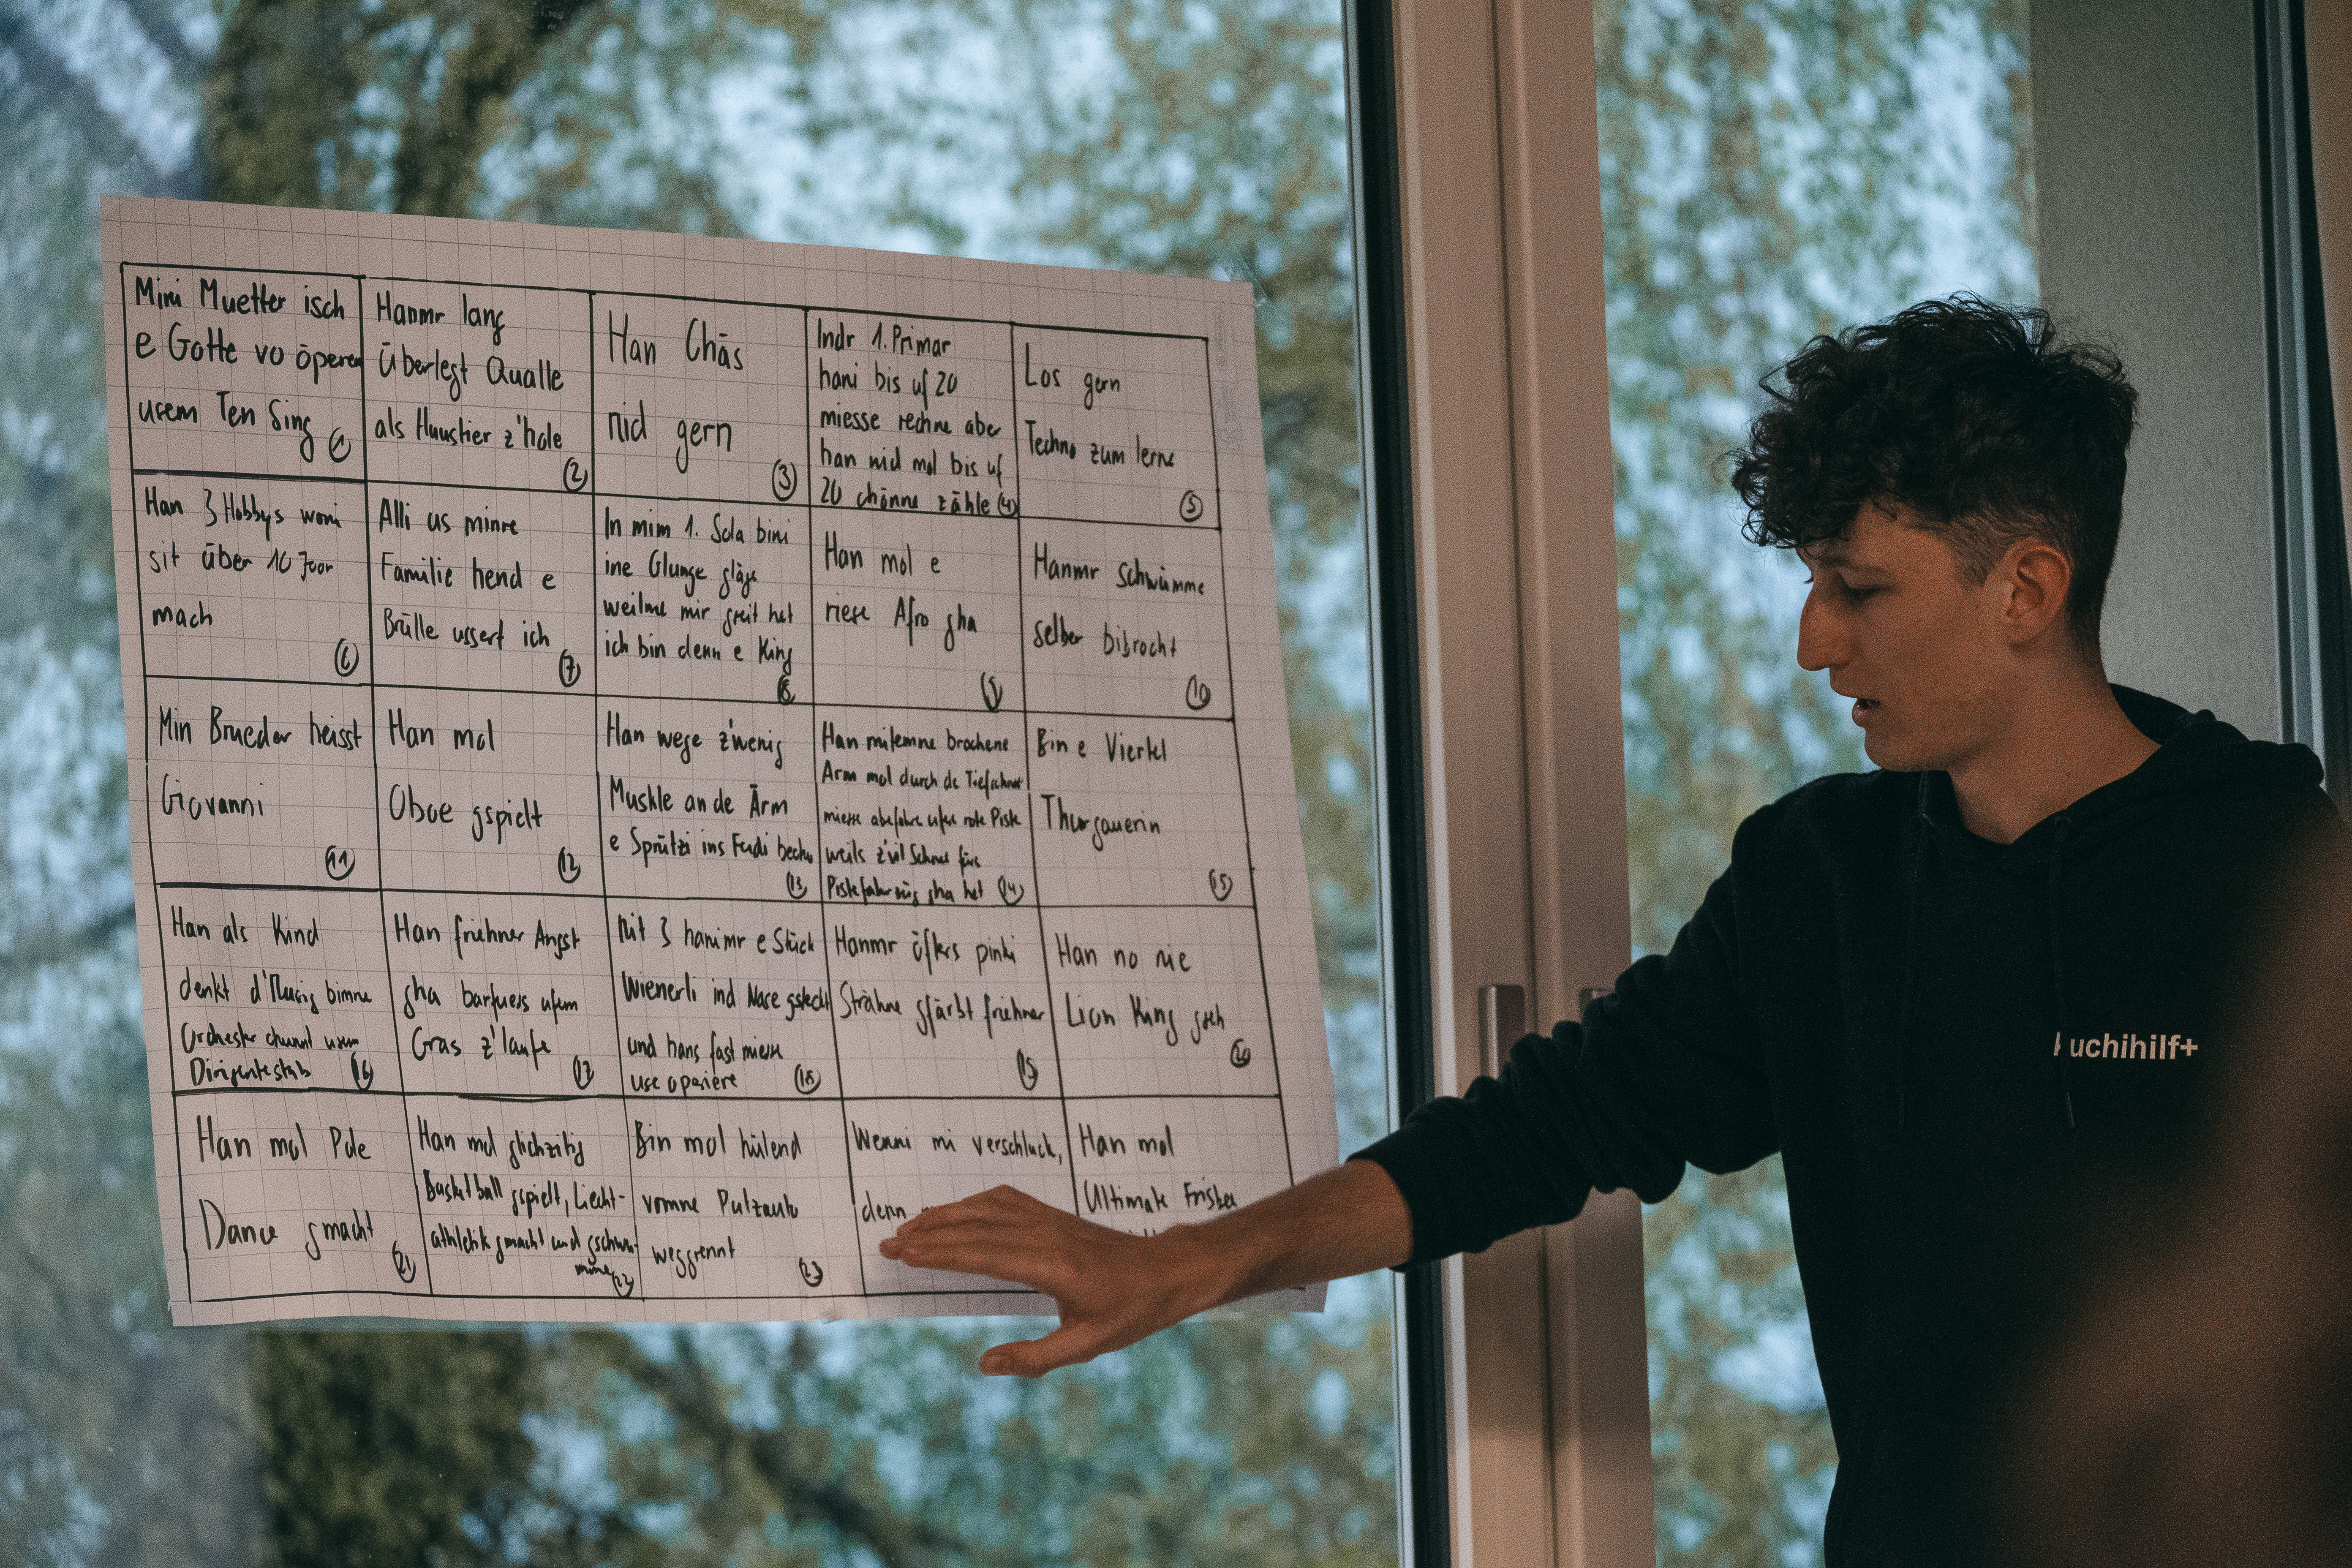 Mini Muetter isch
e Gotte vo öperem
usem Ten Sing
1
Hanmr lang
überlegt Qualle
als Huustier z'hole
2
Han Chäs
nid gern
3
Indr 1. Primar
hani bis uf 20
miesse rechne aber
han nid mol bis uf
20 chönne zähle 4
Los gern
Techno zum lerne
5
Han 3 Hobbys woni
sit über 10 Joor
mach
6
Alli us minre
Familie hend e
Brülle ussert ich
7
In mim 1. Sola bini
ine Glunge gläge
weilme mir gseit het
ich bin denn e King
8
Han mol e
riese Afro gha
9
Hanmr schwümme
selber bibrocht
10
Min Brueder heisst
Giovanni
11
Han mol
Oboe gspielt
12
Han wege z'wenig
Muskle an de Ärm
e Sprützi ins Fudi becho
13
Han mitemne brochene
Arm mol durch de Tiefschnee
miesse abefahre ufere rote Piste
weils z'vil Schnee fürs
Pistefahrzüg gha het 14
Bin e Viertel
Thurgauerin
15
Han als Kind
denkt d'Musig bimne
Orchester chunnt usem
Dirigentestab 16
Han friehner Angst
gha barfuess ufem
Gras z'laufe
17
Mit 3 hanimr e Stück
Wienerli ind Nase gsteckt
und hans fast miesse
use operiere 18
Hanmr öfters pinki
Strähne gfärbt friehner
19
Han no nie
Lion King gseh
20
Han mol Pole
Dance gmacht
21
Han mol glichzitig
Basketball gspielt, Liecht-
athletik gmacht und gschwu-
mme 22
Bin mol hülend
vomne Putzauto
weggrennt
23
Wenni mi verschluck,
denn
Han mol
Ultimate Frisbee
kuchihilf+